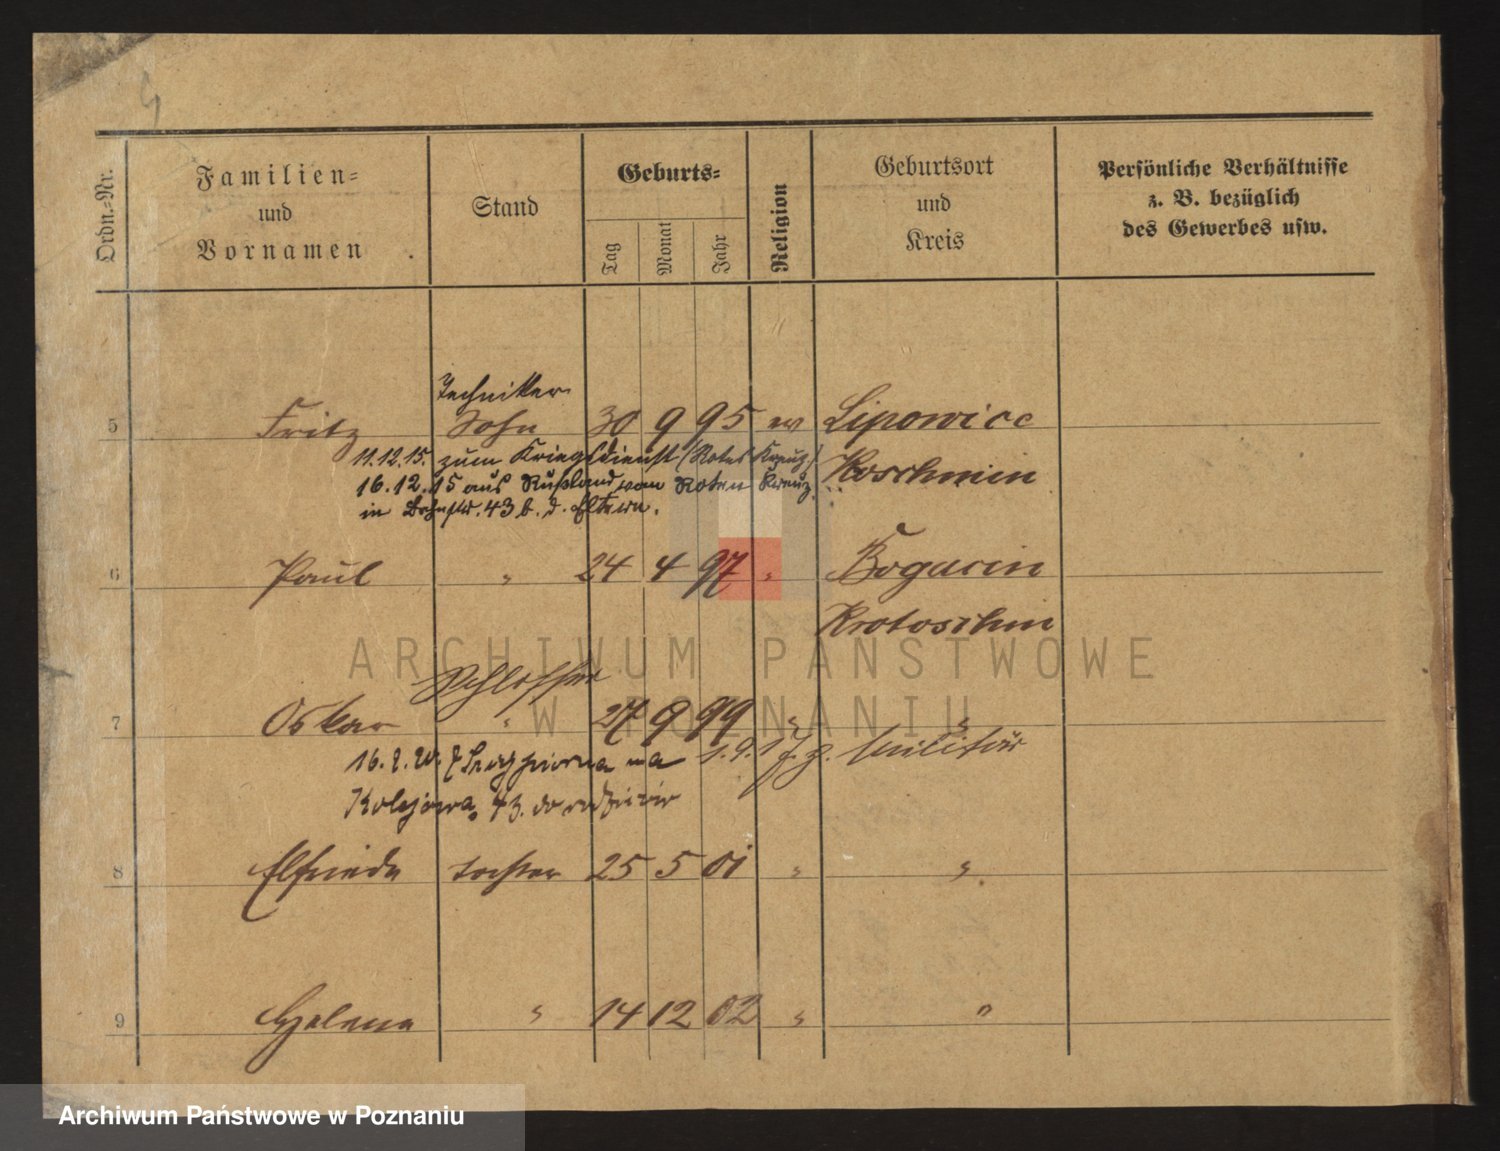 Ordn.-Nr.
Familien-
und
Vornamen
Stand
Geburts-
Tag
Monat
Jahr
Religion
Geburtsort
und
Kreis
Persönliche Verhältnisse
z. B. bezüglich
des Gewerbes usw.
Techniker
5 Fritz Sohn 30 9 95 ev Lipowice
11.12.15. zum Kriegsdienst (Rotes Kreuz) Koschmin
16.12.15 aus Rußland vom Roten Kreuz
in Bahnstr. 43 b. d. Eltern.
6 Paul " 24 4 97 " Bogacin
Krotoschin
Schlosser
7 Oskar " 27 9 99 " "
16. 2. 20. z na 1.9.17 z. Militär
Kolejowa 43. do rodziców
8 Elfriede Tochter 25 5 01 " "
9 Helena " 14 12 02 " "
ARCHIWUM PAŃSTWOWE
W POZNANIU
Archiwum Państwowe w Poznaniu